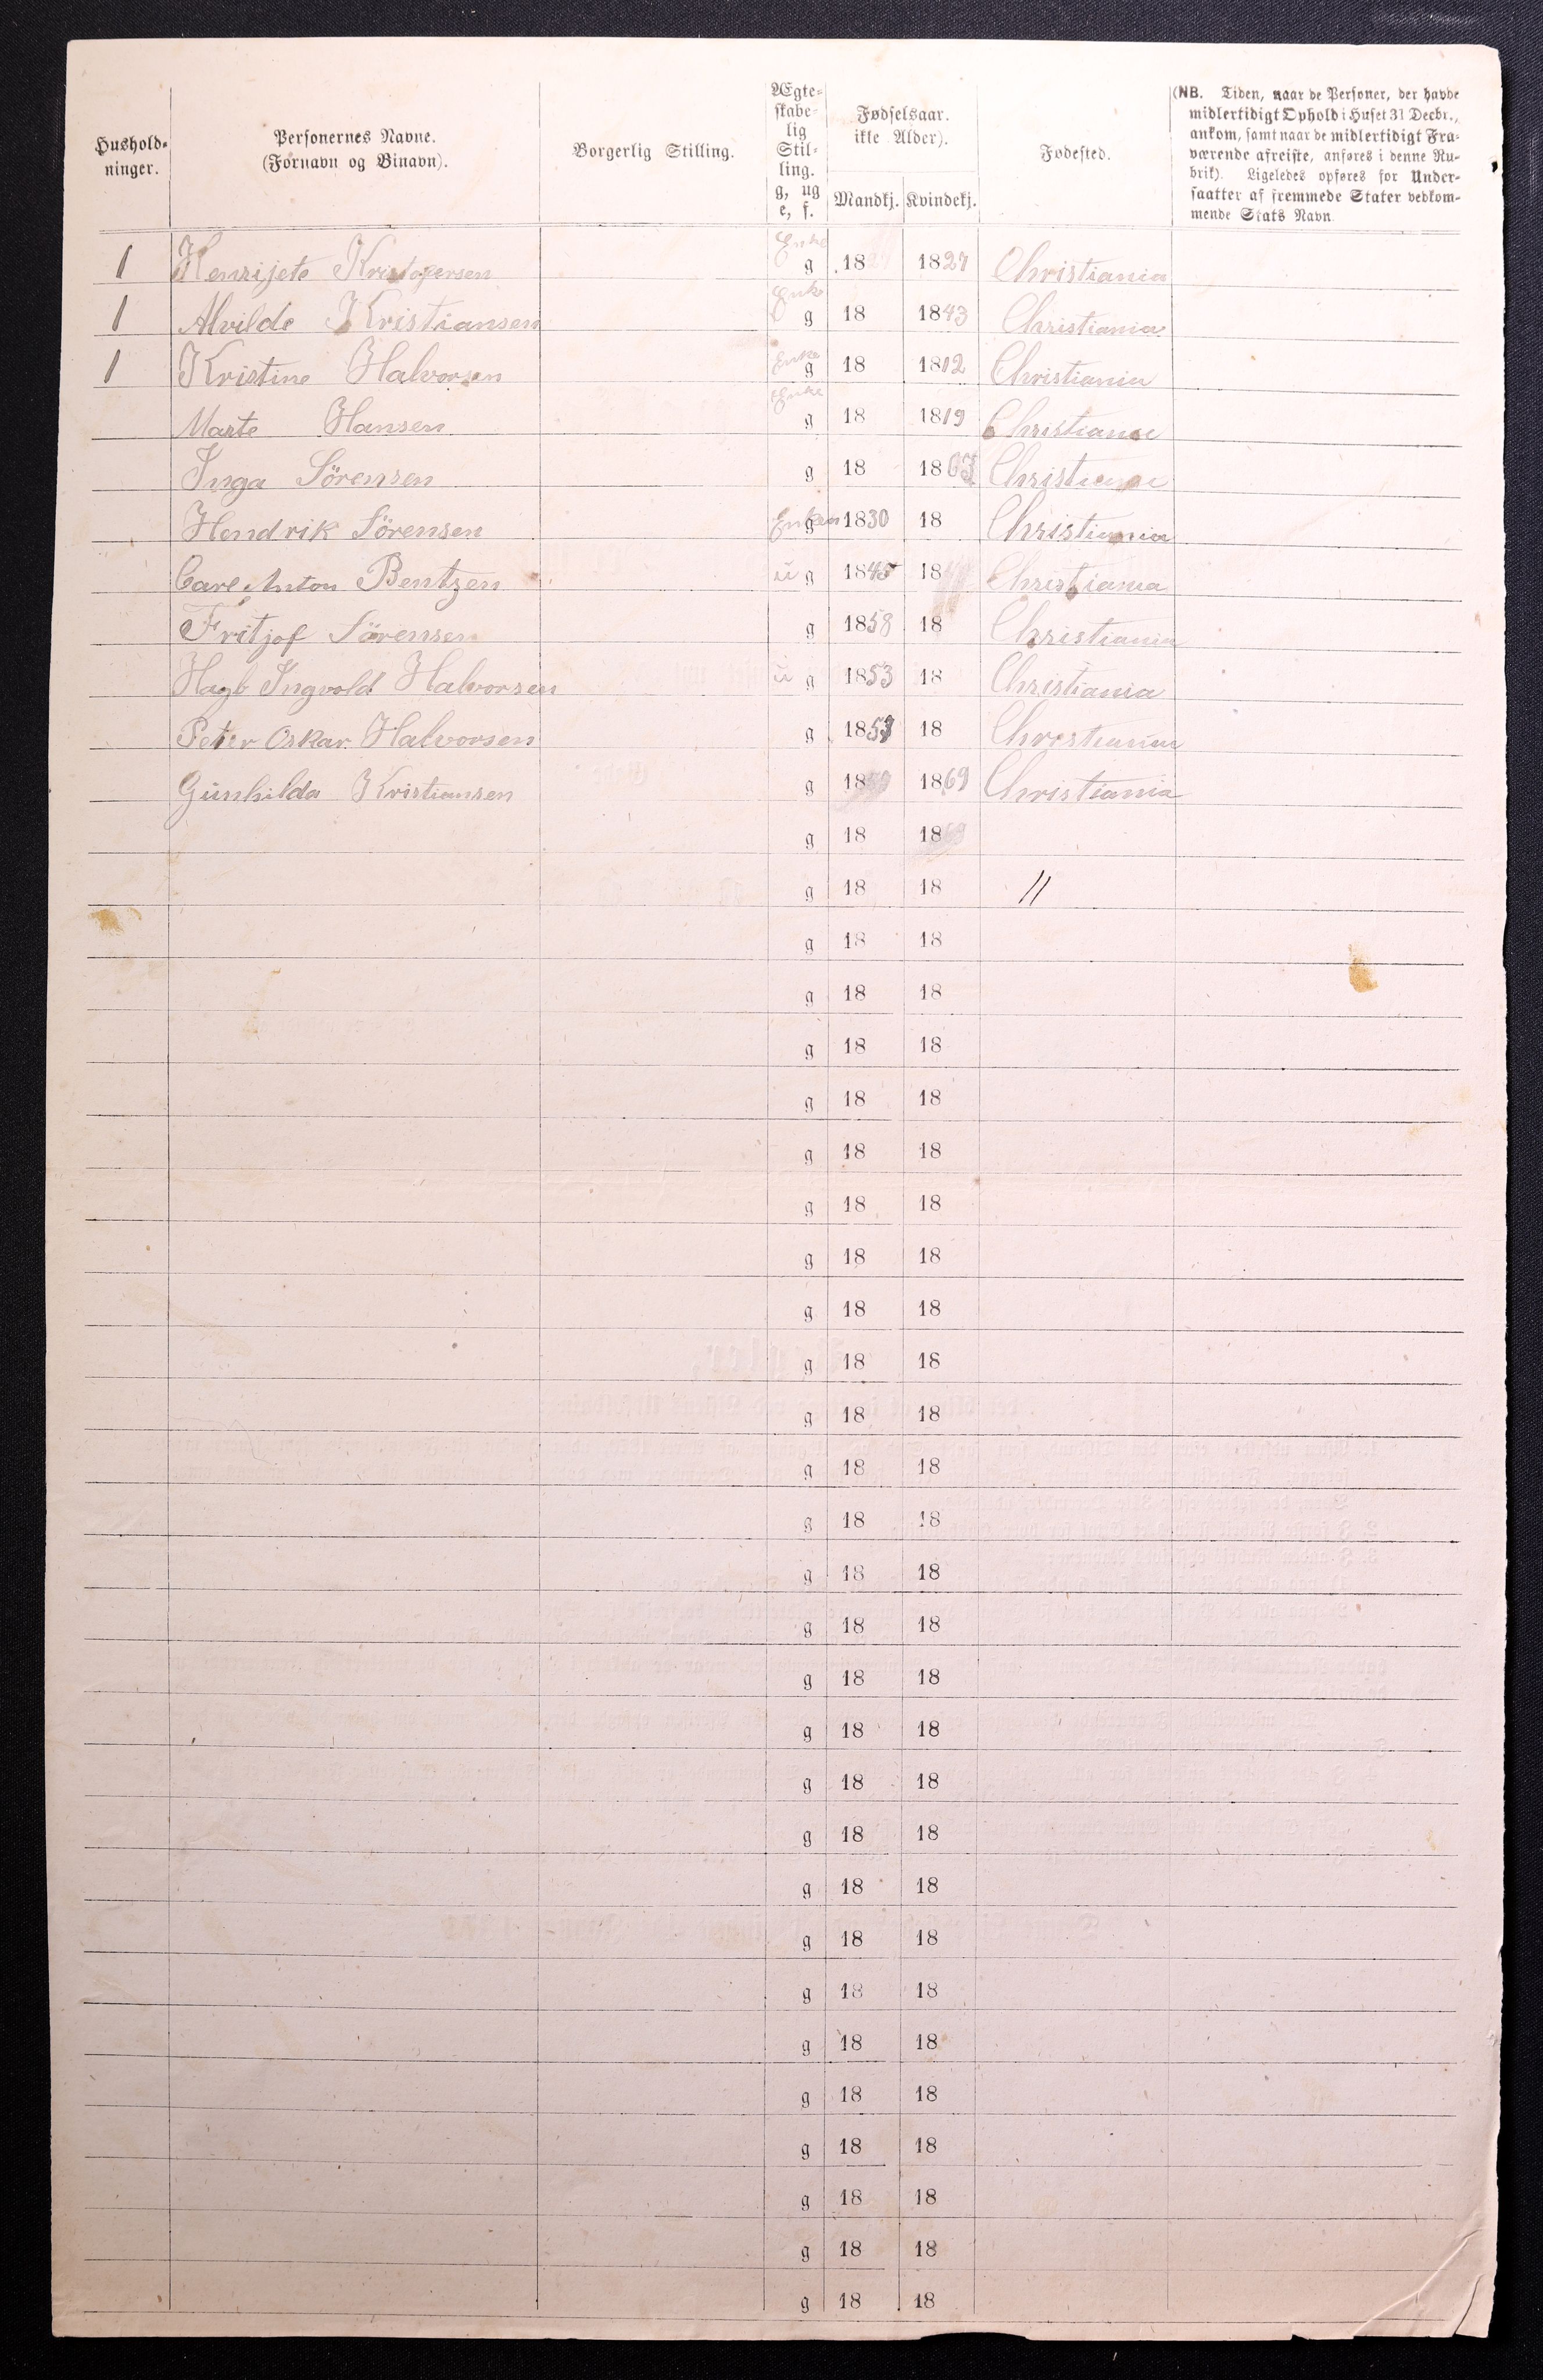 Hushold-
ninger.
Personernes Navne.
(Fornavn og Binavn).
Borgerlig Stilling.
Ægte-
skabe-
lig
Stil-
ling.
g, ug
e, f.
Fødselsaar.
ikke Alder).
Mandkj. Kvindekj.
Fødested.
(NB. Tiden, naar de Personer, der havde
midlertidigt Ophold i Huset 31 Decbr.,
ankom, samt naar de midlertidigt Fra-
værende afreiste, anføres i denne Ru-
brik). Ligeledes opføres for Under-
saatter af fremmede Stater vedkom-
mende Stats Navn
1 Henrijete Kristofersen Enke g 18 1827 Christiania
1 Alvilde Kristiansen Enke g 18 1843 Christiania
1 Kristine Halvorsen Enke g 18 1812 Christiania
Marte Hansen Enke g 18 1819 Christiania
Inga Sörensen g 18 1863 Christiania
Hendrik Sörensen Enken g 1830 18 Christiania
Carl Anton Bentzen u g 1845 18 Christiania
Fritjof Sörensen g 1858 18 Christiania
Ingvold Halvorsen u g 1853 18 Christiania
Peter Oskar Halvorsen g 185 18 Christiania
Gunhilda Kristiansen g 18 1869 Christiania
g 18 18
g 18 18 11
g 18 18
g 18 18
g 18 18
g 18 18
g 18 18
g 18 18
g 18 18
g 18 18
g 18 18
g 18 18
g 18 18
g 18 18
g 18 18
g 18 18
g 18 18
g 18 18
g 18 18
g 18 18
g 18 18
g 18 18
g 18 18
g 18 18
g 18 18
g 18 18
g 18 18
g 18 18
g 18 18